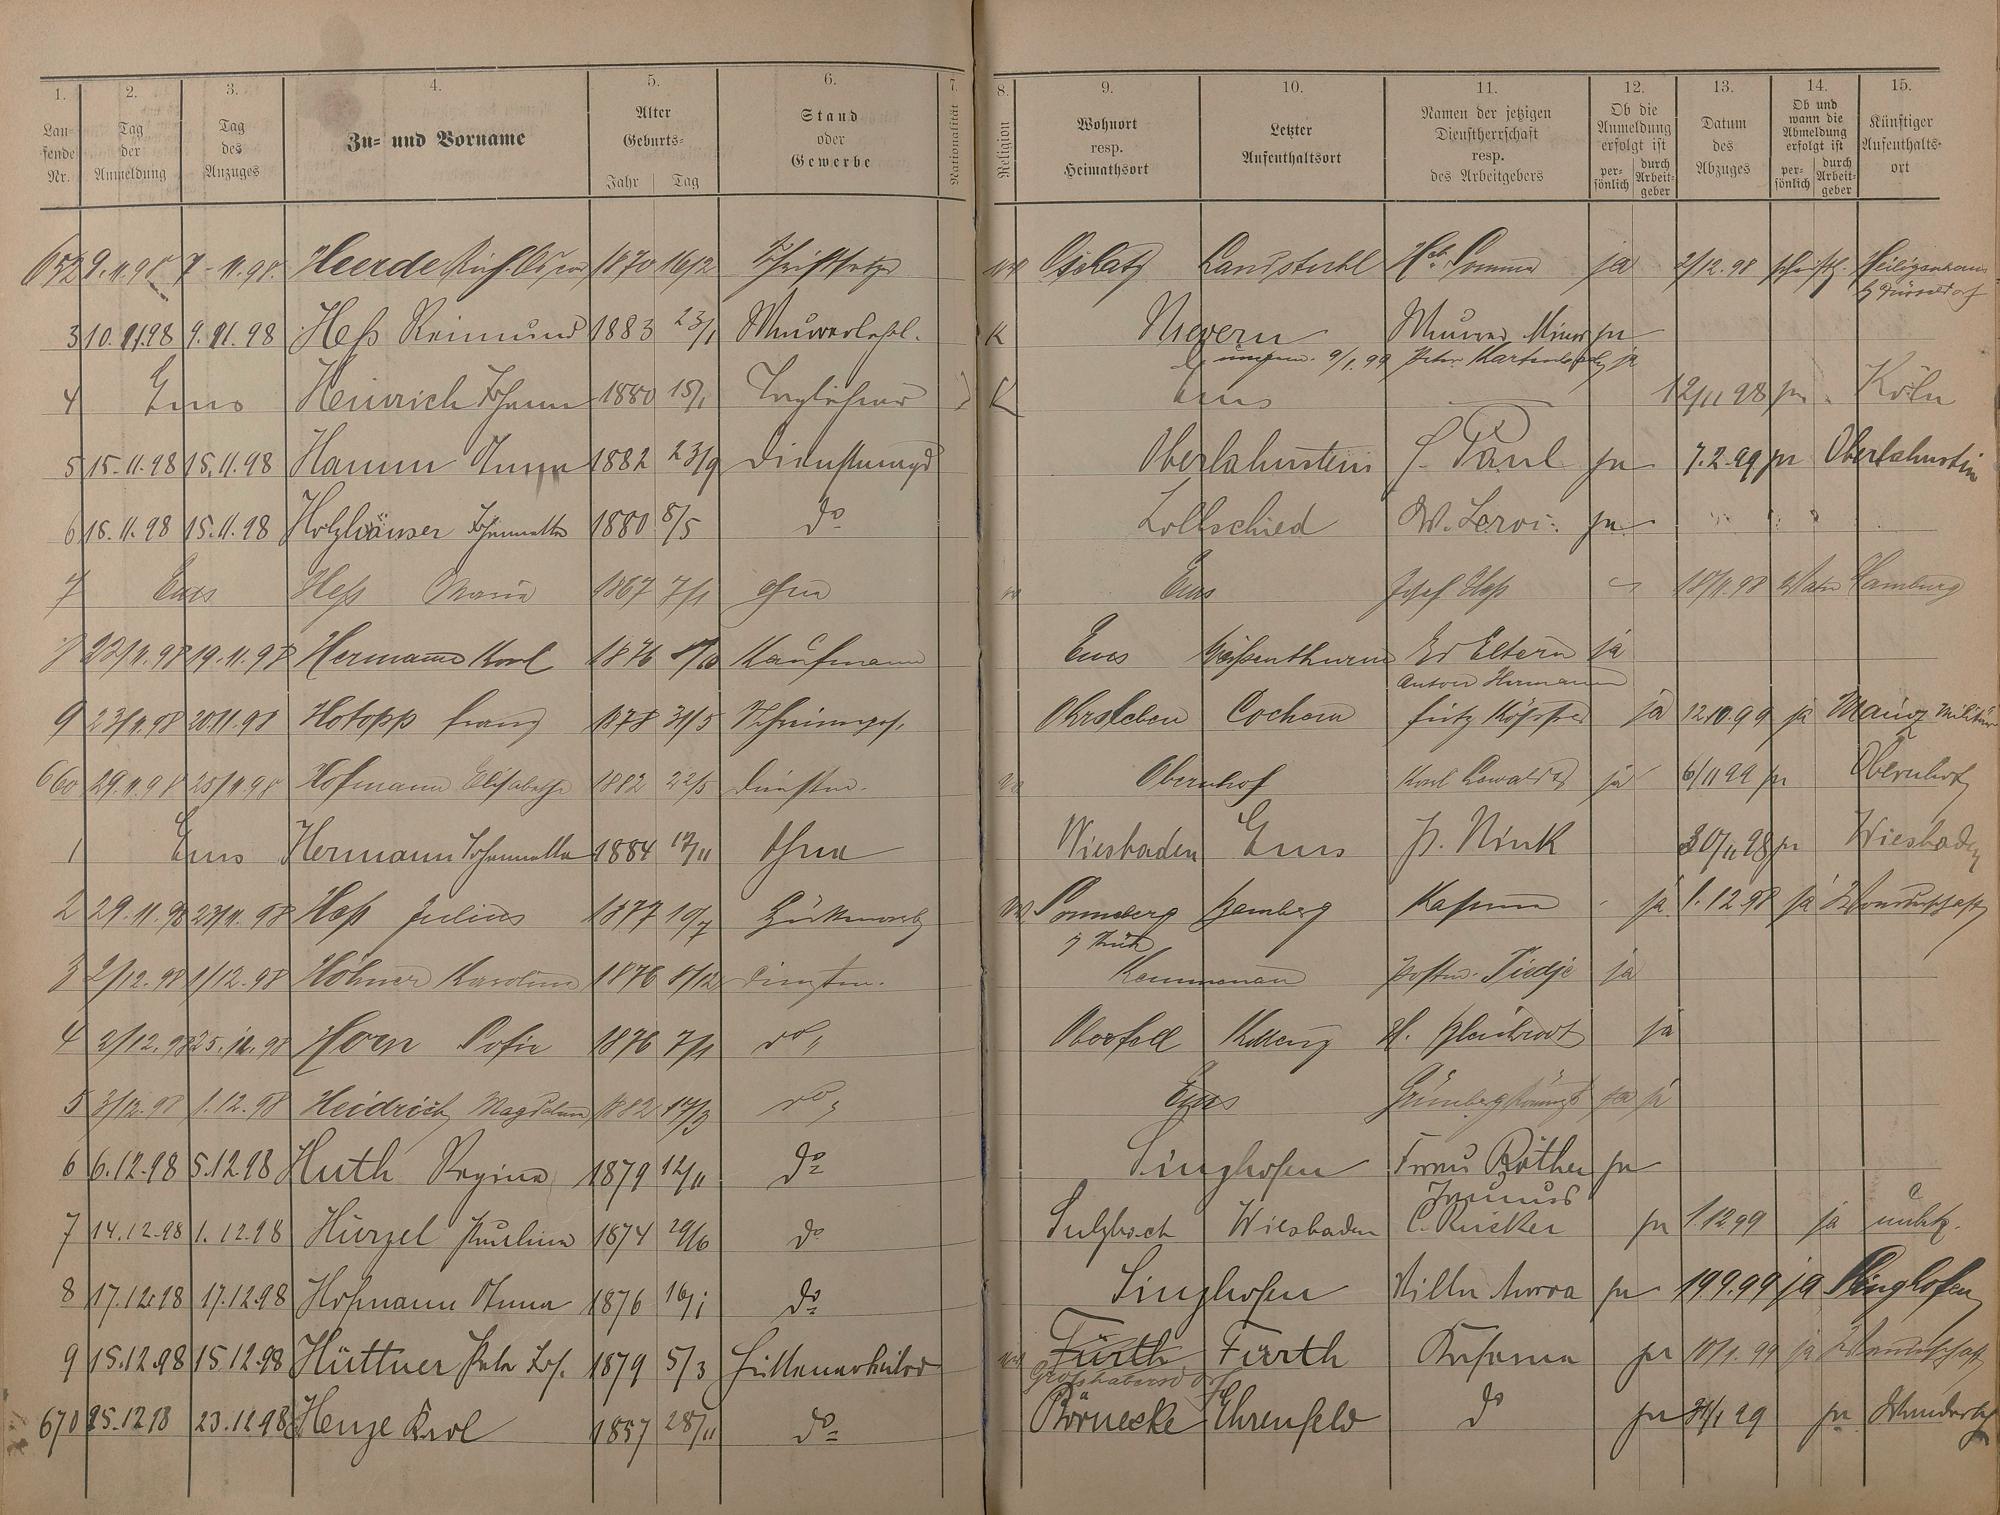 1. 2. 3. 4. 5. 6. 7. 8. 9. 10. 11. 12. 13. 14. 15.
Lau-
fende
Nr.
Tag
der
Anmeldung
Tag
des
Anzuges
Zu- und Vorname
Alter
Geburts-
Jahr Tag
Stand
oder
Gewerbe
Nationalität
Religion
Wohnort
resp.
Heimathsort
Letzter
Aufenthaltsort
Namen der jetzigen
Dienstherrschaft
resp.
des Arbeitgebers
Ob die
Anmeldung
erfolgt ist
per-
sönlich
durch
Arbeit-
geber
Datum
des
Abzuges
Ob und
wann die
Abmeldung
erfolgt ist
per-
sönlich
durch
Arbeit-
geber
Künftiger
Aufenthalts-
ort
652 9.11.98 7.11.98 Heerde 1870 16/2 Schriftsetzer Oschatz Landstuhl Hch. Sommer ja 2/12.98 schriftl. Heiligenhaus
b Düsseldorf
3 10.11.98 9.11.98 Heß Reimund 1883 23/1 Maurerlehrl. K Nievern Maurer ja
9/1.99 Peter ja
4 Ems Heinrich Johann 1880 15/1 Taglöhner K Ems 12/11 98 ja Köln
5 15.11.98 15.11.98 Hamm Anna 1882 23/9 Dienstmagd Oberlahnstein J. Paul ja 7.2.99 ja Oberlahnstein
6 18.11.98 15.11.98 Holzhäuser Johannetta 1880 8/5 do Lollschied W. ja
7 Ems Heß Maria 1867 7/1 ohne Ems Josef Heß 18/11.98 Hamburg
8 22/11.98 19.11.98 Hermann Karl 1876 Kaufmann Ems Weißenthurm Eltern ja
Anton Hermann
9 23/11.98 20.11.98 Hotopp Franz 1878 31/5 Ohrsleben Cochem Fritz ja 12.10.99 ja Mainz Militär
660 29.11.98 25/11.98 Hofmann Elisabethe 1882 22/5 Dienstm. Obernhof Karl ja 6/11 99 ja Obernhof
1 Ems Hermann Johannetta 1884 17/11 Ohne Wiesbaden Ems P. Nink 30/11 98 ja Wiesbaden
2 29.11.98 23/11.98 Heß Julius 1877 19/7 Sonneberg Bamberg Kasima ja 1.12.98 ja Wanderschaft
3 2/12.98 1/12.98 Höhner Karoline 1876 8/12 Dienstm. Kemmenau Postm. Tiedje ja
4 2/12.98 Horn Sofie 1876 7/1 do Oberfell H. ja
5 3/12.98 1.12.98 Heidrich Magdalena 1882 17/3 do Ems Grünberg ja ja
6 6.12.98 5.12.98 Huth Regina 1879 12/11 do Singhofen Frau Röther ja
7 14.12.98 1.12.98 Hürzel Paulina 1874 29/6 do Sulzbach Wiesbaden C. Rücker ja 1.12 99 ja unbek.
8 17.12.98 17.12.98 Hofmann Anna 1876 16/1 do Singhofen ja 19.9.99 ja Singhofen
9 15.12.98 15.12.98 Hüttner Peter Jos. 1879 5/3 Hüttenarbeiter Fürth Fürth Kasima ja 10/1.99 ja Wanderschaft
Großhabersdorf
670 25.12 98 23.12.98 Henze Karl 1857 28/11 do Börnecke Ehrenfeld do ja 31/1 99 ja